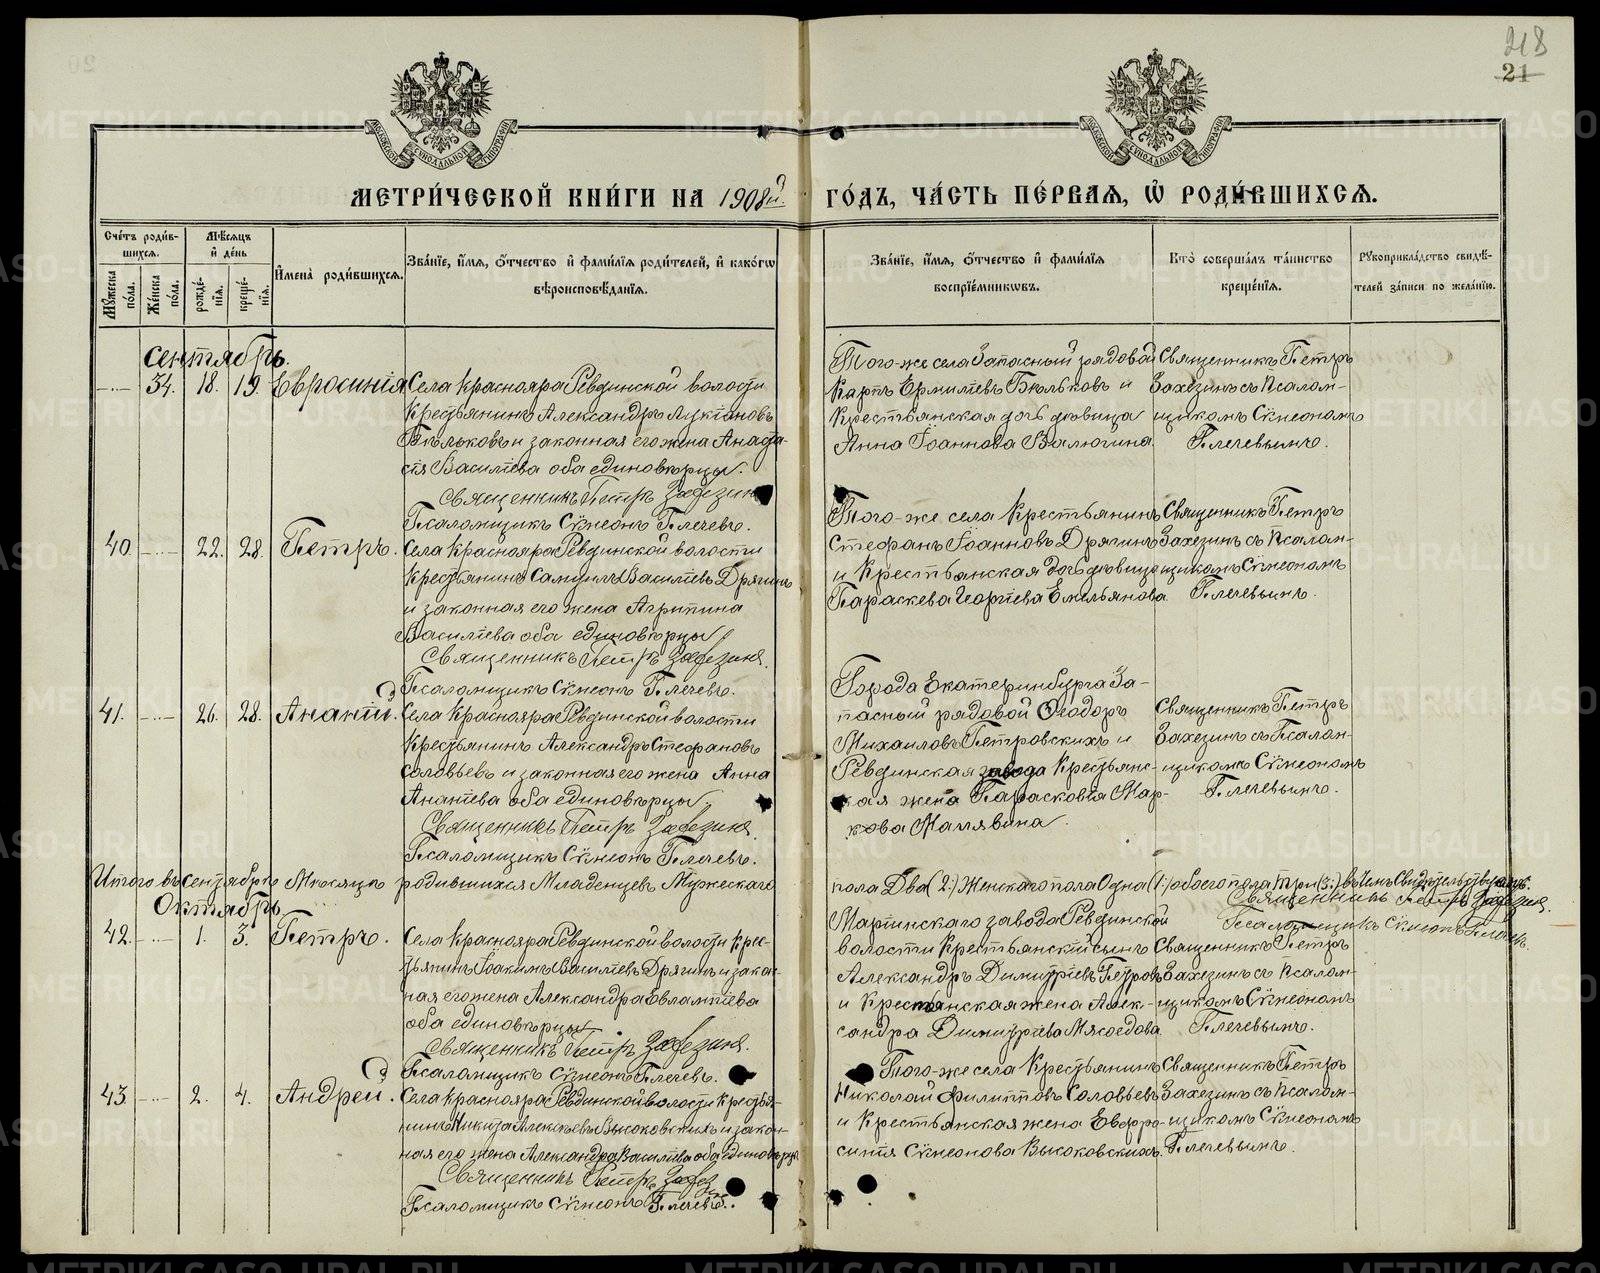 218
21
МЕТРИ́ЧЕСКОЙ КНИ́ГИ НА 1908й.
ГО́ДЪ, ЧА́СТЬ ПЕ́РВАЯ, Ѡ҆ РОДИ́ВШИХСѦ.
Сче́тъ роди́в-
шихсѧ.
Мꙋ́жеска по́ла.
Же́нска по́ла.
Мѣ́сѧцъ
и҆ де́нь
рожде́-
нїѧ.
креще́-
нїѧ.
И҆мена̀ роди́вшихсѧ.
Зва́нїе, и҆́мѧ, ѻ҆́тчество и҆ фамѝлїѧ роди́телей, и҆ како́гѡ
вѣроисповѣ́данїѧ.
Зва́нїе, и҆́мѧ, ѻ҆́тчество и҆ фамѝлїѧ
воспрїе́мникѡвъ.
Кто̀ соверша́лъ та́инство
креще́нїѧ.
Рꙋкоприкла́дство свидѣ́-
телей за́писи по жела́нїю.
Сентябрь.
34. 18. 19. Евросинія
Села Краснояра Ревдинской волости
Крестьянинъ Александръ Лукіановъ
Бюльковъ и законная его жена Анаста-
сія Василіева оба единовѣрцы.
Священникъ Петръ Захезин
Псаломщикъ Сѵмеонъ Плечевъ.
Того-же села Запасный рядовой
Карпъ Ермиліевъ Бюльковъ и
Крестьянская дочь дѣвица
Анна Іоаннова Валюгина
Священникъ Петръ
Захезинъ съ Псалом-
щикомъ Сѵмеономъ
Плечевымъ.
40. 22. 28. Петръ.
Села Краснояра Ревдинской волости
Крестьянинъ Самуилъ Василіевъ Дрягинъ
и законная его жена Агрипина
Василіева оба единовѣрцы
Священникъ Петръ Захезинъ.
Псаломщикъ Сѵмеонъ Плечевъ.
Того-же села Крестьянинъ
Стефанъ Іоанновъ Дрягинъ
и Крестьянская дочь дѣвица
Параскева Георгіева Емельянова
Священникъ Петръ
Захезинъ съ Псалом-
щикомъ Сѵмеономъ
Плечевымъ.
41. 26. 28. Ананій.
Села Краснояра Ревдинской волости
Крестьянинъ Александръ Стефановъ
Соловьевъ и законная его жена Анна
Ананіева оба единовѣрцы.
Священникъ Петръ Захезинъ
Псаломщикъ Сѵмеонъ Плечевъ.
Города Екатеринбурга За-
пасный рядовой Ѳеодоръ
Михаиловъ Петровскихъ и
Ревдинская завода Крестьянс-
кая жена Парасковія Мар-
кова Малявина.
Священникъ Петръ
Захезинъ съ Псалом-
щикомъ Сѵмеономъ
Плечевымъ.
Итого въ сентябрѣ Мѣсяцѣ родившихся Младенцев Мужескаго
пола Два (2:) Женскаго пола Одна (1:) обоего пола три (3:) въ чемъ Свидѣтельствуемъ.
Священникъ Петръ Захезинъ.
Псаломщикъ Сѵмеонъ Плечевъ.
Октябрь
42. 1. 3. Петръ.
Села Краснояра Ревдинской волости Крес-
тьянинъ Іоакимъ Василіевъ Дрягинъ и закон-
ная его жена Александра Евлампіева
оба единовѣрцы
Священникъ Петръ Захезинъ.
Псаломщикъ Сѵмеонъ Плечевъ.
Маріинскаго завода Ревдинской
волости Крестьянскій сынъ
Александръ Димитріевъ Петров
и Крестьянская жена Алек-
сандра Димитріева Мясоедова
Священникъ Петръ
Захезинъ съ Псалом-
щикомъ Сѵмеономъ
Плечевымъ.
43. 2. 4. Андрей.
Села Краснояра Ревдинской волости Крестья-
нинъ Никита Алексѣевъ Высоковскихъ и закон-
ная его жена Александра Василіева оба единовѣрцы
Священникъ Петръ Захез
Псаломщикъ Сѵмеонъ Плечевъ.
Того-же села Крестьянинъ
Николай Филипповъ Соловьев
и Крестьянская жена Евфро-
синія Сѵмеонова Высоковскихъ.
Священникъ Петръ
Захезинъ съ Псалом-
щикомъ Сѵмеономъ
Плечевымъ.
METRIKI.GASO-URAL.RU